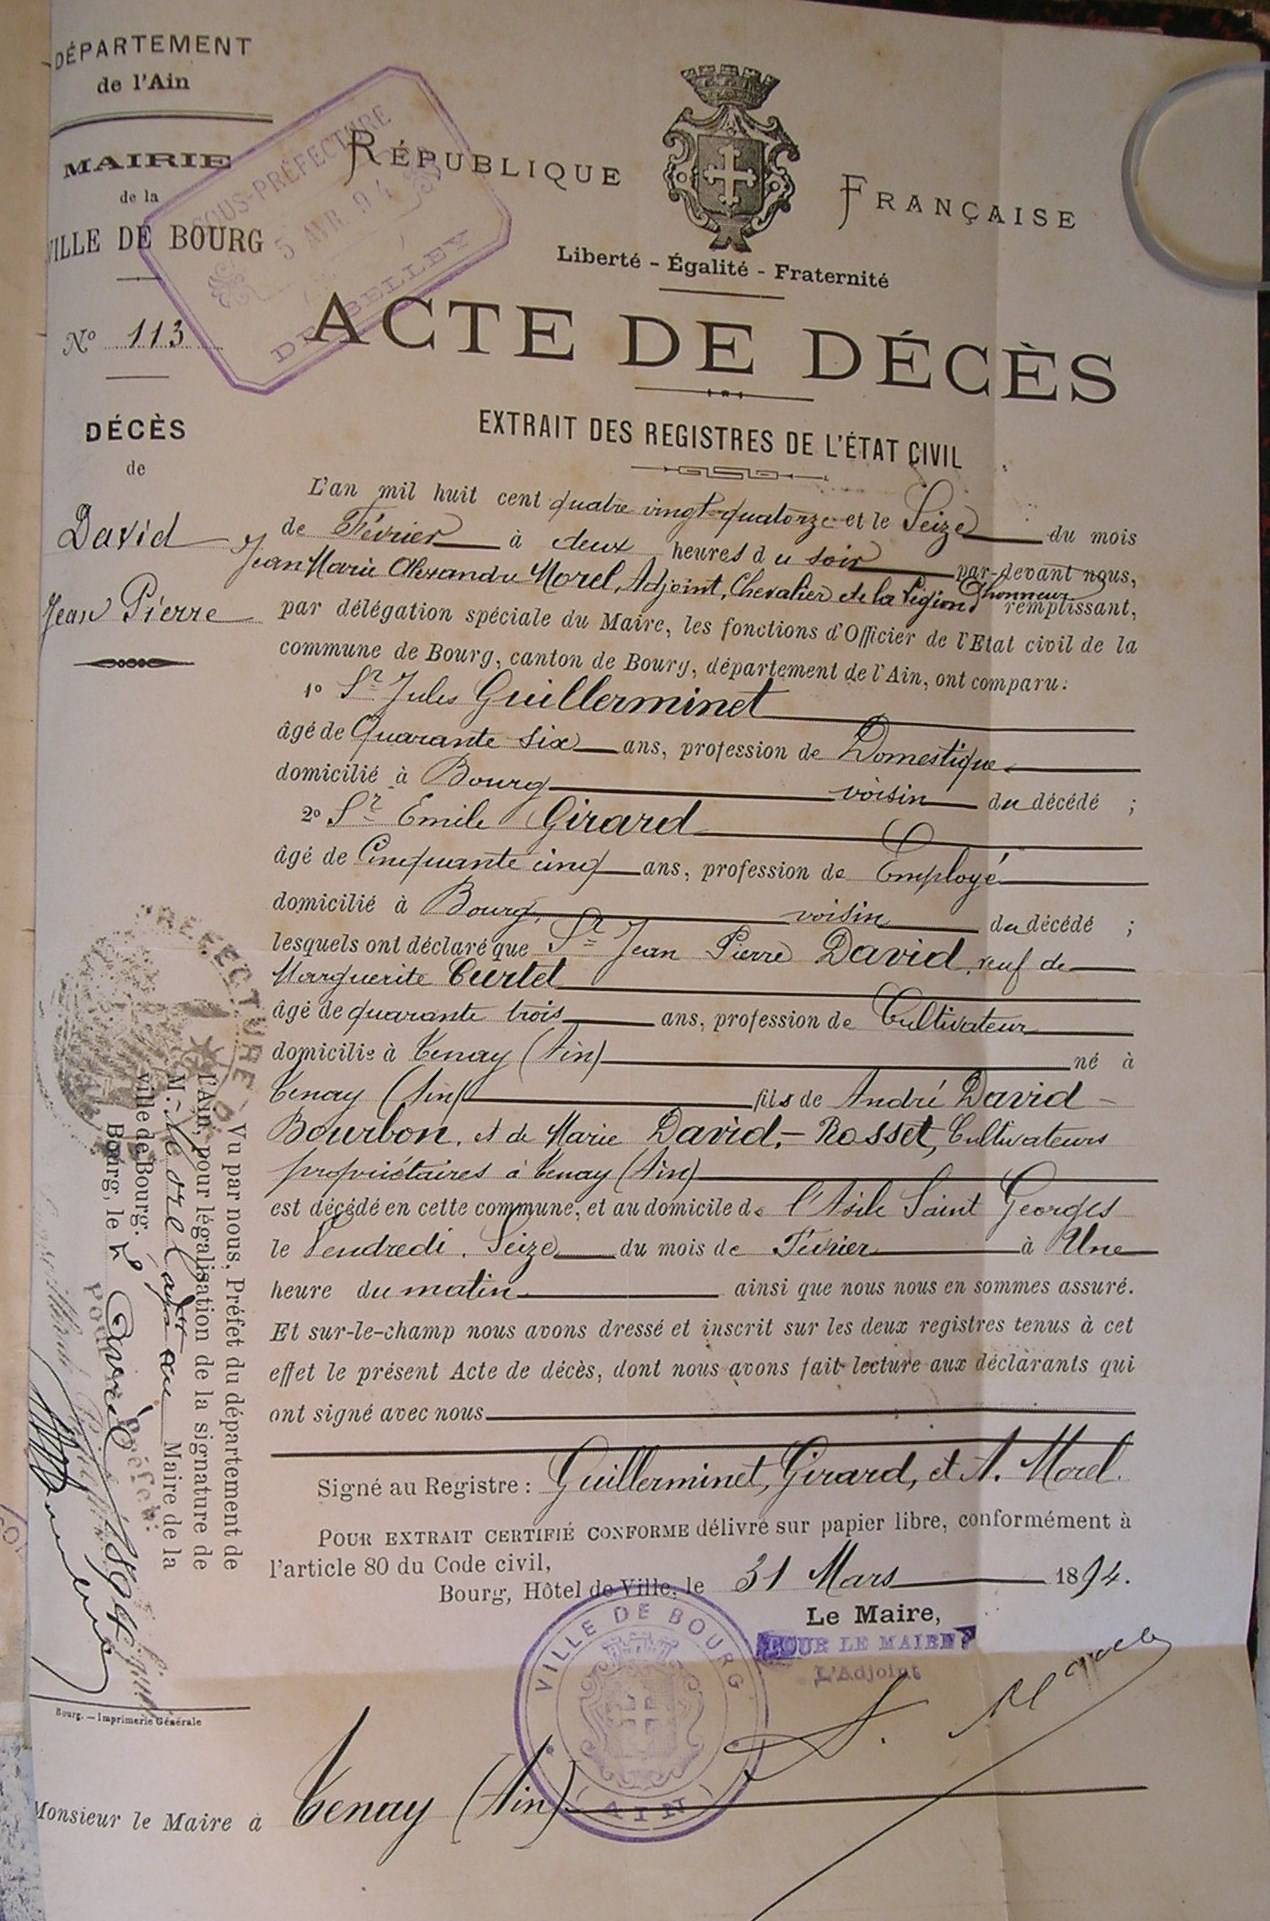 DÉPARTEMENT
de l'Ain
MAIRIE
de la
VILLE DE BOURG
No 113
DÉCÈS
de
David
Jean Pierre
SOUS-PRÉFECTURE
5 AVR 94
DE BELLEY
RÉPUBLIQUE FRANÇAISE
Liberté - Égalité - Fraternité
ACTE DE DÉCÈS
EXTRAIT DES REGISTRES DE L'ÉTAT CIVIL
L'an mil huit cent quatre vingt-quatorze et le Seize du mois
de Février à deux heures du soir par-devant nous,
Jean Marie Alexandre Morel, Adjoint, Chevalier de la Légion d'honneur remplissant,
par délégation spéciale du Maire, les fonctions d'Officier de l'Etat civil de la
commune de Bourg, canton de Bourg, département de l'Ain, ont comparu:
1o Sr Jules Guillerminet
âgé de Quarante six ans, profession de Domestique
domicilié à Bourg voisin du décédé ;
2o Sr Emile Girard
âgé de Cinquante cinq ans, profession de Employé
domicilié à Bourg, voisin du décédé ;
lesquels ont déclaré que Sr Jean Pierre David, veuf de
Marguerite Curtet
âgé de quarante trois ans, profession de Cultivateur
domicilié à Tenay (Ain) né à
Tenay (Ain) fils de André David-
Bourbon, et de Marie David,-Rosset, Cultivateurs
propriétaires à Tenay (Ain)
est décédé en cette commune, et au domicile de l'Asile Saint Georges
le Vendredi. Seize du mois de Février à Une
heure du matin ainsi que nous nous en sommes assuré.
Et sur-le-champ nous avons dressé et inscrit sur les deux registres tenus à cet
effet le présent Acte de décès, dont nous avons fait lecture aux déclarants qui
ont signé avec nous
Signé au Registre : Guillerminet, Girard, et A. Morel.
POUR EXTRAIT CERTIFIÉ CONFORME délivré sur papier libre, conformément à
l'article 80 du Code civil,
Bourg, Hôtel de Ville, le 31 Mars 1894.
Le Maire,
POUR LE MAIRE
L'Adjoint
A. Morel
VILLE DE BOURG
(AIN)
Monsieur le Maire à Tenay (Ain)
PRÉFECTURE
Vu par nous, Préfet du département de
l'Ain, pour légalisation de la signature de
M. Morel adjt au Maire de la
ville de Bourg.
Bourg, le 2 Avril 1894
Préfet:
Bourg. — Imprimerie Générale